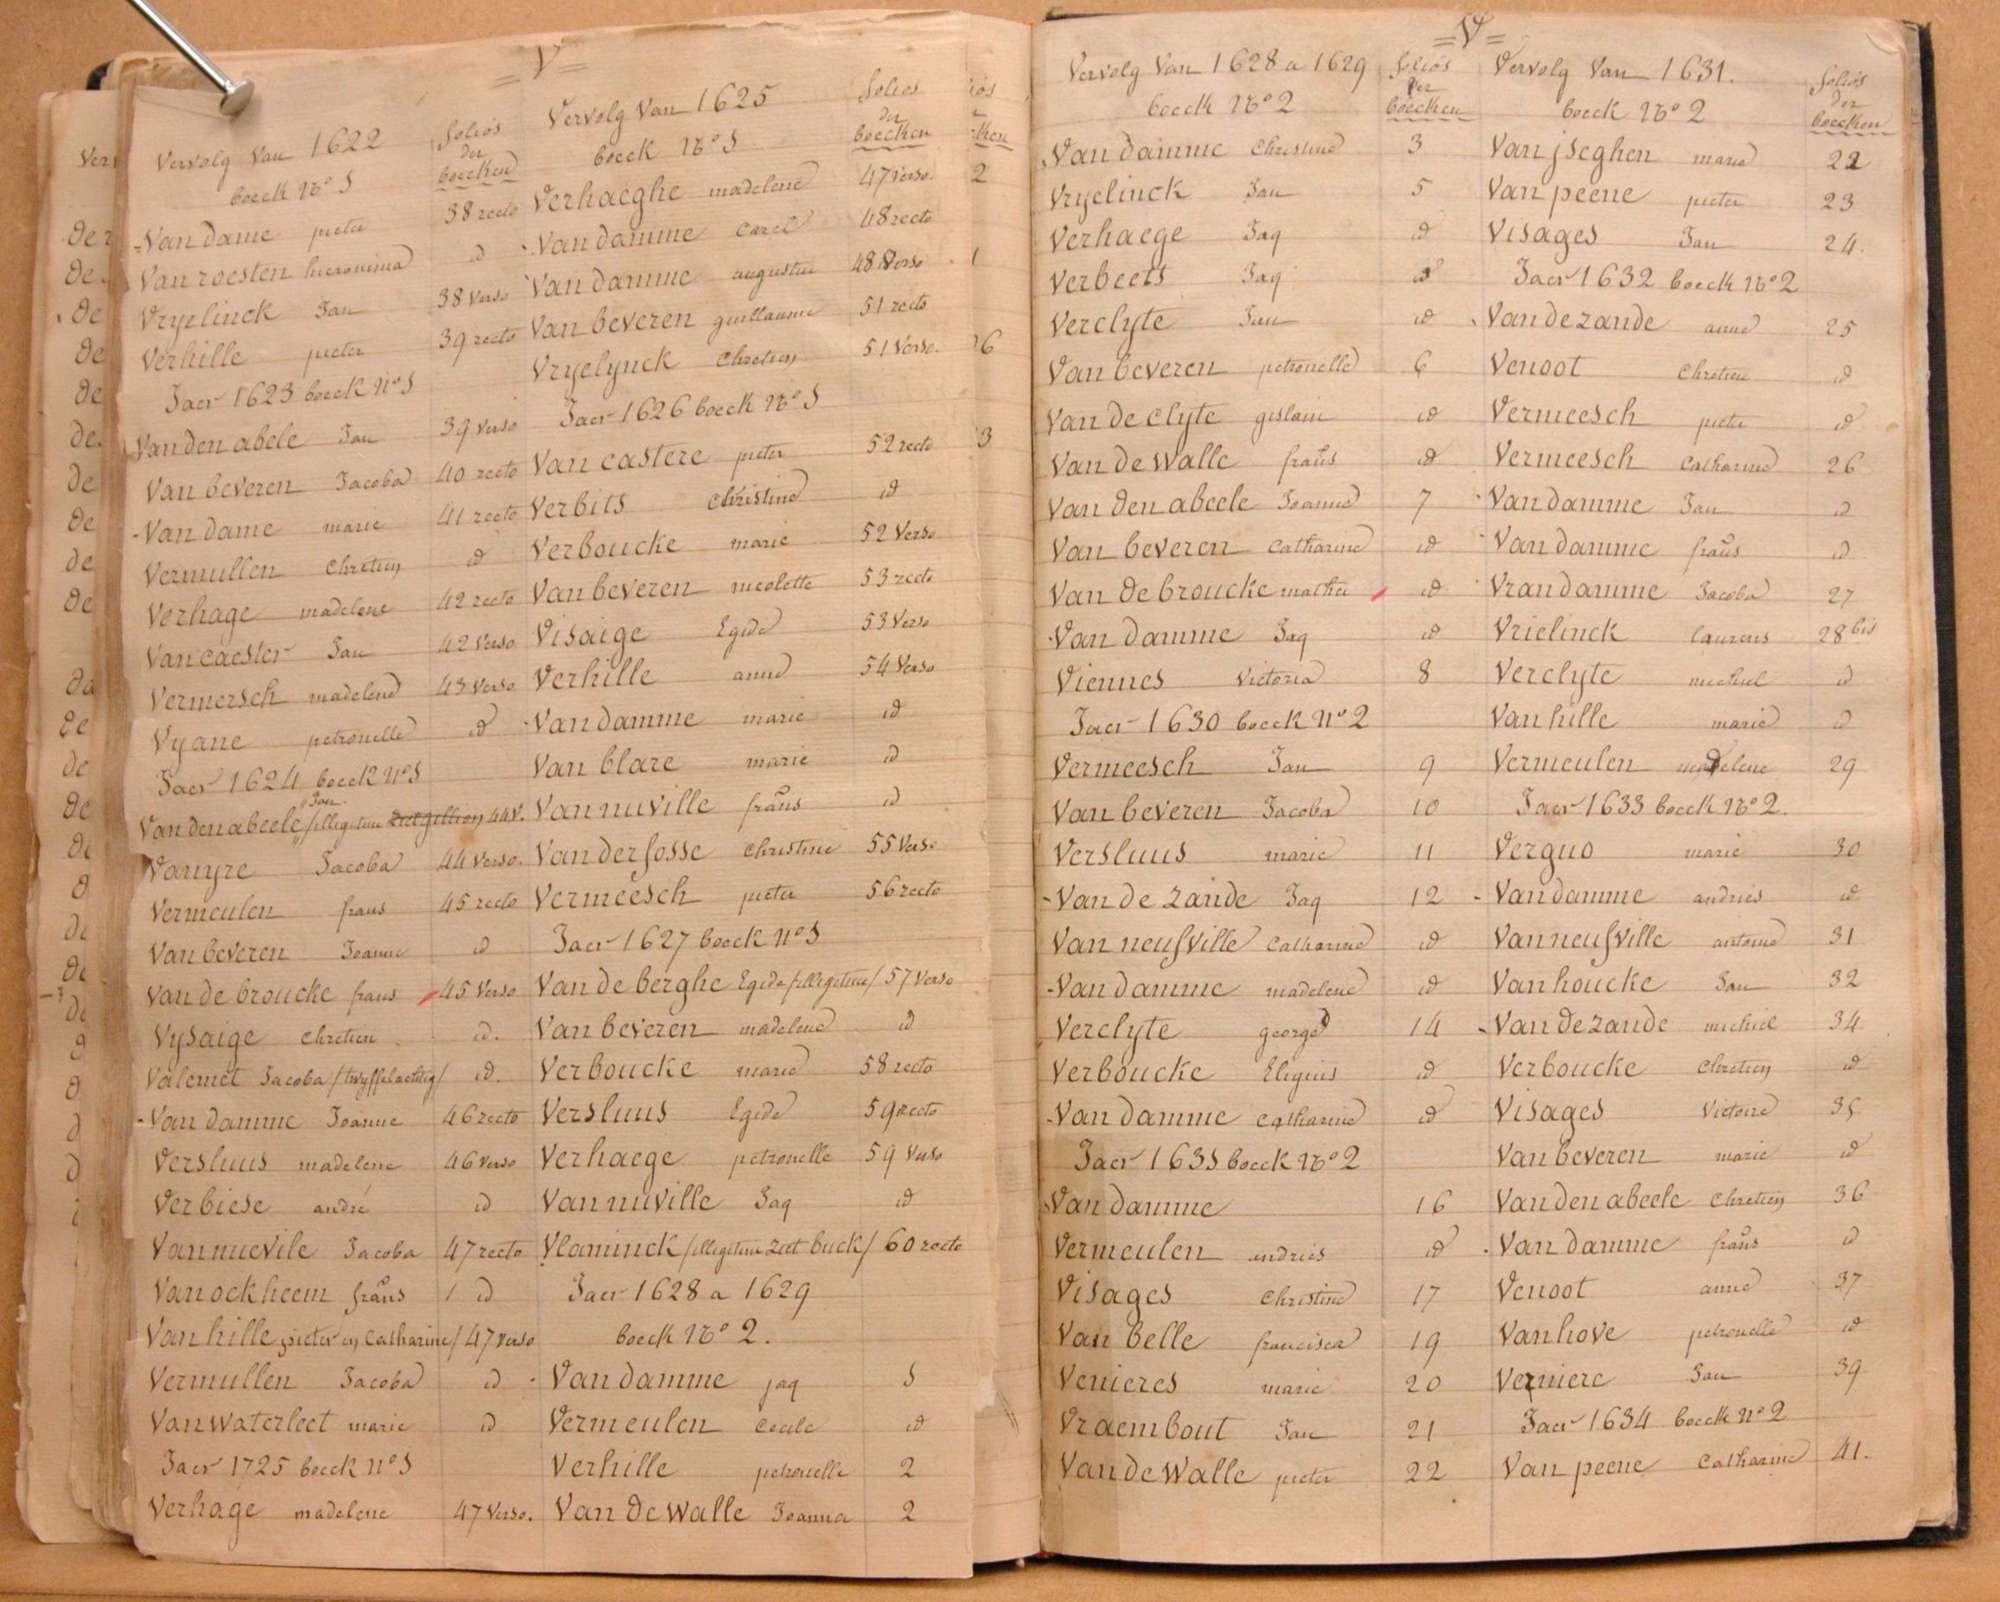 =V=
Vervolg Van 1622
boeck No 1
folios
der
boecken
Van dame pieter 38 recto
Van roesten hieronima id
Vryelinck Jan 38 Verso
Verhille pieter 39 recto
Jaer 1623 boeck No 1
Van den abele Jan 39 Verso
Van beveren Jacoba 40 recto
Van dame marie 41 recto
Vermullen Chretien id
Verhage madelene 42 recto
Van caester Jan 42 Verso
Vermersch madelene 43 Verso
Vyane petronelle id
Jaer 1624 boeck No 1
Jan
Van den abeele /illegitime 44 V.
Vanyre Jacoba 44 Verso.
Vermeulen frans 45 recto
Van beveren Joanne id
Van de broucke frans 45 Verso
Vysaige Chretien id.
Valemet Jacoba /twyffelachtig/ id.
Van damme Joanne 46 recto
Versluus madelene 46 Verso
Verbiese andré id
Van nuevile Jacoba 47 recto
Van ockheem frans id
Van hille pieter en Catharine/ 47 Verso
Vermullen Jacoba id
Van waterleet marie id
Jaer 1725 boeck No 1
Verhage madelene 47 Verso.
Vervolg Van 1625
boeck No 1
folios
der
boecken
Verhaeghe madelene 47 Verso.
Van damme Carel 48 recto
Van damme augustin 48 Verso
Van beveren guillaume 51 recto
Vryelynck Chretien 51 Verso.
Jaer 1626 boeck No 1
Van castere pieter 52 recto
Verbits Christine id
Verboucke marie 52 Verso
Van beveren nicolette 53 recto
Visaige Egide 53 Verso
Verhille anne 54 Verso
Van damme marie id
Van blare marie id
Van nuville frans id
Van der fosse Christine 55 Verso
Vermeesch pieter 56 recto
Jaer 1627 boeck No 1
Van de berghe Egide /illegitime/ 57 Verso
Van beveren madelene id
Verboucke marie 58 recto
Versluus Egide 59 recto
Verhaege petronelle 59 Verso
Van nuville Jaq id
Vlaminck /illegitime zeet buck/ 60 recto
Jaer 1628 a 1629
boeck No 2.
Van damme jaq 1
Vermeulen Cecile id
Verhille petronelle 2
Van de walle Joanna 2
=V=
Vervolg Van 1628 a 1629
boeck No 2
folios
der
boecken
Van damme Christine 3
Vryelinck Jan 5
Verhaege Jaq id
Verbeets Jaq id
Verclyte Jan id
Van beveren petronelle 6
Van de clyte gislain id
Van de walle frans id
Van den abeele Joanne 7
Van beveren Catharine id
Van de broucke mathie id
Van damme Jaq id
Viennes Victoria 8
Jaer 1630 boeck No 2
Vermeesch Jan 9
Van beveren Jacoba 10
Versluus marie 11
Van de zande Jaq 12
Van neufville Catharine id
Van damme madelene id
Verclyte george 14
Verboucke Eligius id
Van damme Catharine id
Jaer 1631 boeck No 2
Van damme 16
Vermeulen andries id
Visages Christine 17
Van belle francisca 19
Venieres marie 20
Vraembout Jan 21
Van de walle pieter 22
Vervolg Van 1631.
boeck No 2
folios
der
boecken
Van jseghen marie 22
Van peene pieter 23
Visages Jan 24.
Jaer 1632 boeck No 2
Van de zande anne 25
Venoot Chretien id
Vermeesch pieter id
Vermeesch Catharine 26
Van damme Jan id
Van damme frans id
Vrandamme Jacoba 27
Vrielinck laurens 28 bis
Verclyte michiel id
Van hille marie id
Vermeulen madelene 29
Jaer 1633 boeck No 2.
Verquo marie 30
Van damme andries id
Van neufville antoine 31
Van houcke Jan 32
Van de zande michiel 34
Verboucke Chretien id
Visages Victoire 35
Van beveren marie id
Van den abeele Chretien 36
Van damme frans id
Venoot anne 37
Van hove petronelle id
Verniere Jan 39
Jaer 1634 boeck No 2
Van peene Catharine 41.